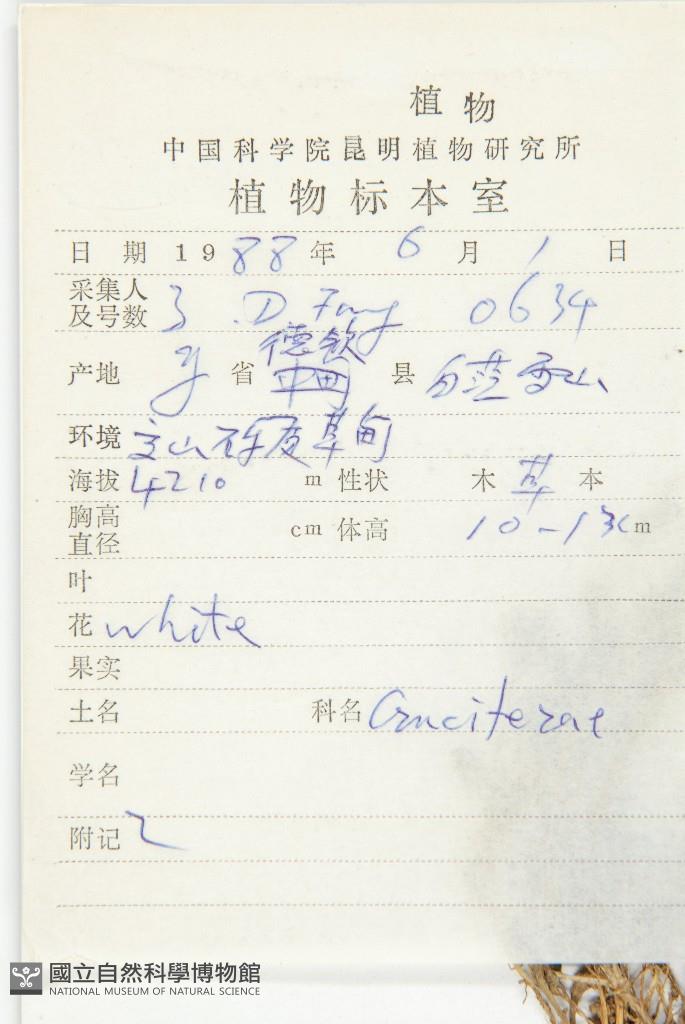 植物
中国科学院昆明植物研究所
植物标本室
日期 1988年 6月 1日
采集人
及号数 D. Fang 0634
产地 省 德钦 县 白茫雪山
环境 草甸
海拔 4210 m 性状 木 草 本
胸高
直径 cm 体高 10-13cm
叶
花 white
果实
土名 科名 Cruciferae
学名
附记
國立自然科學博物館
NATIONAL MUSEUM OF NATURAL SCIENCE